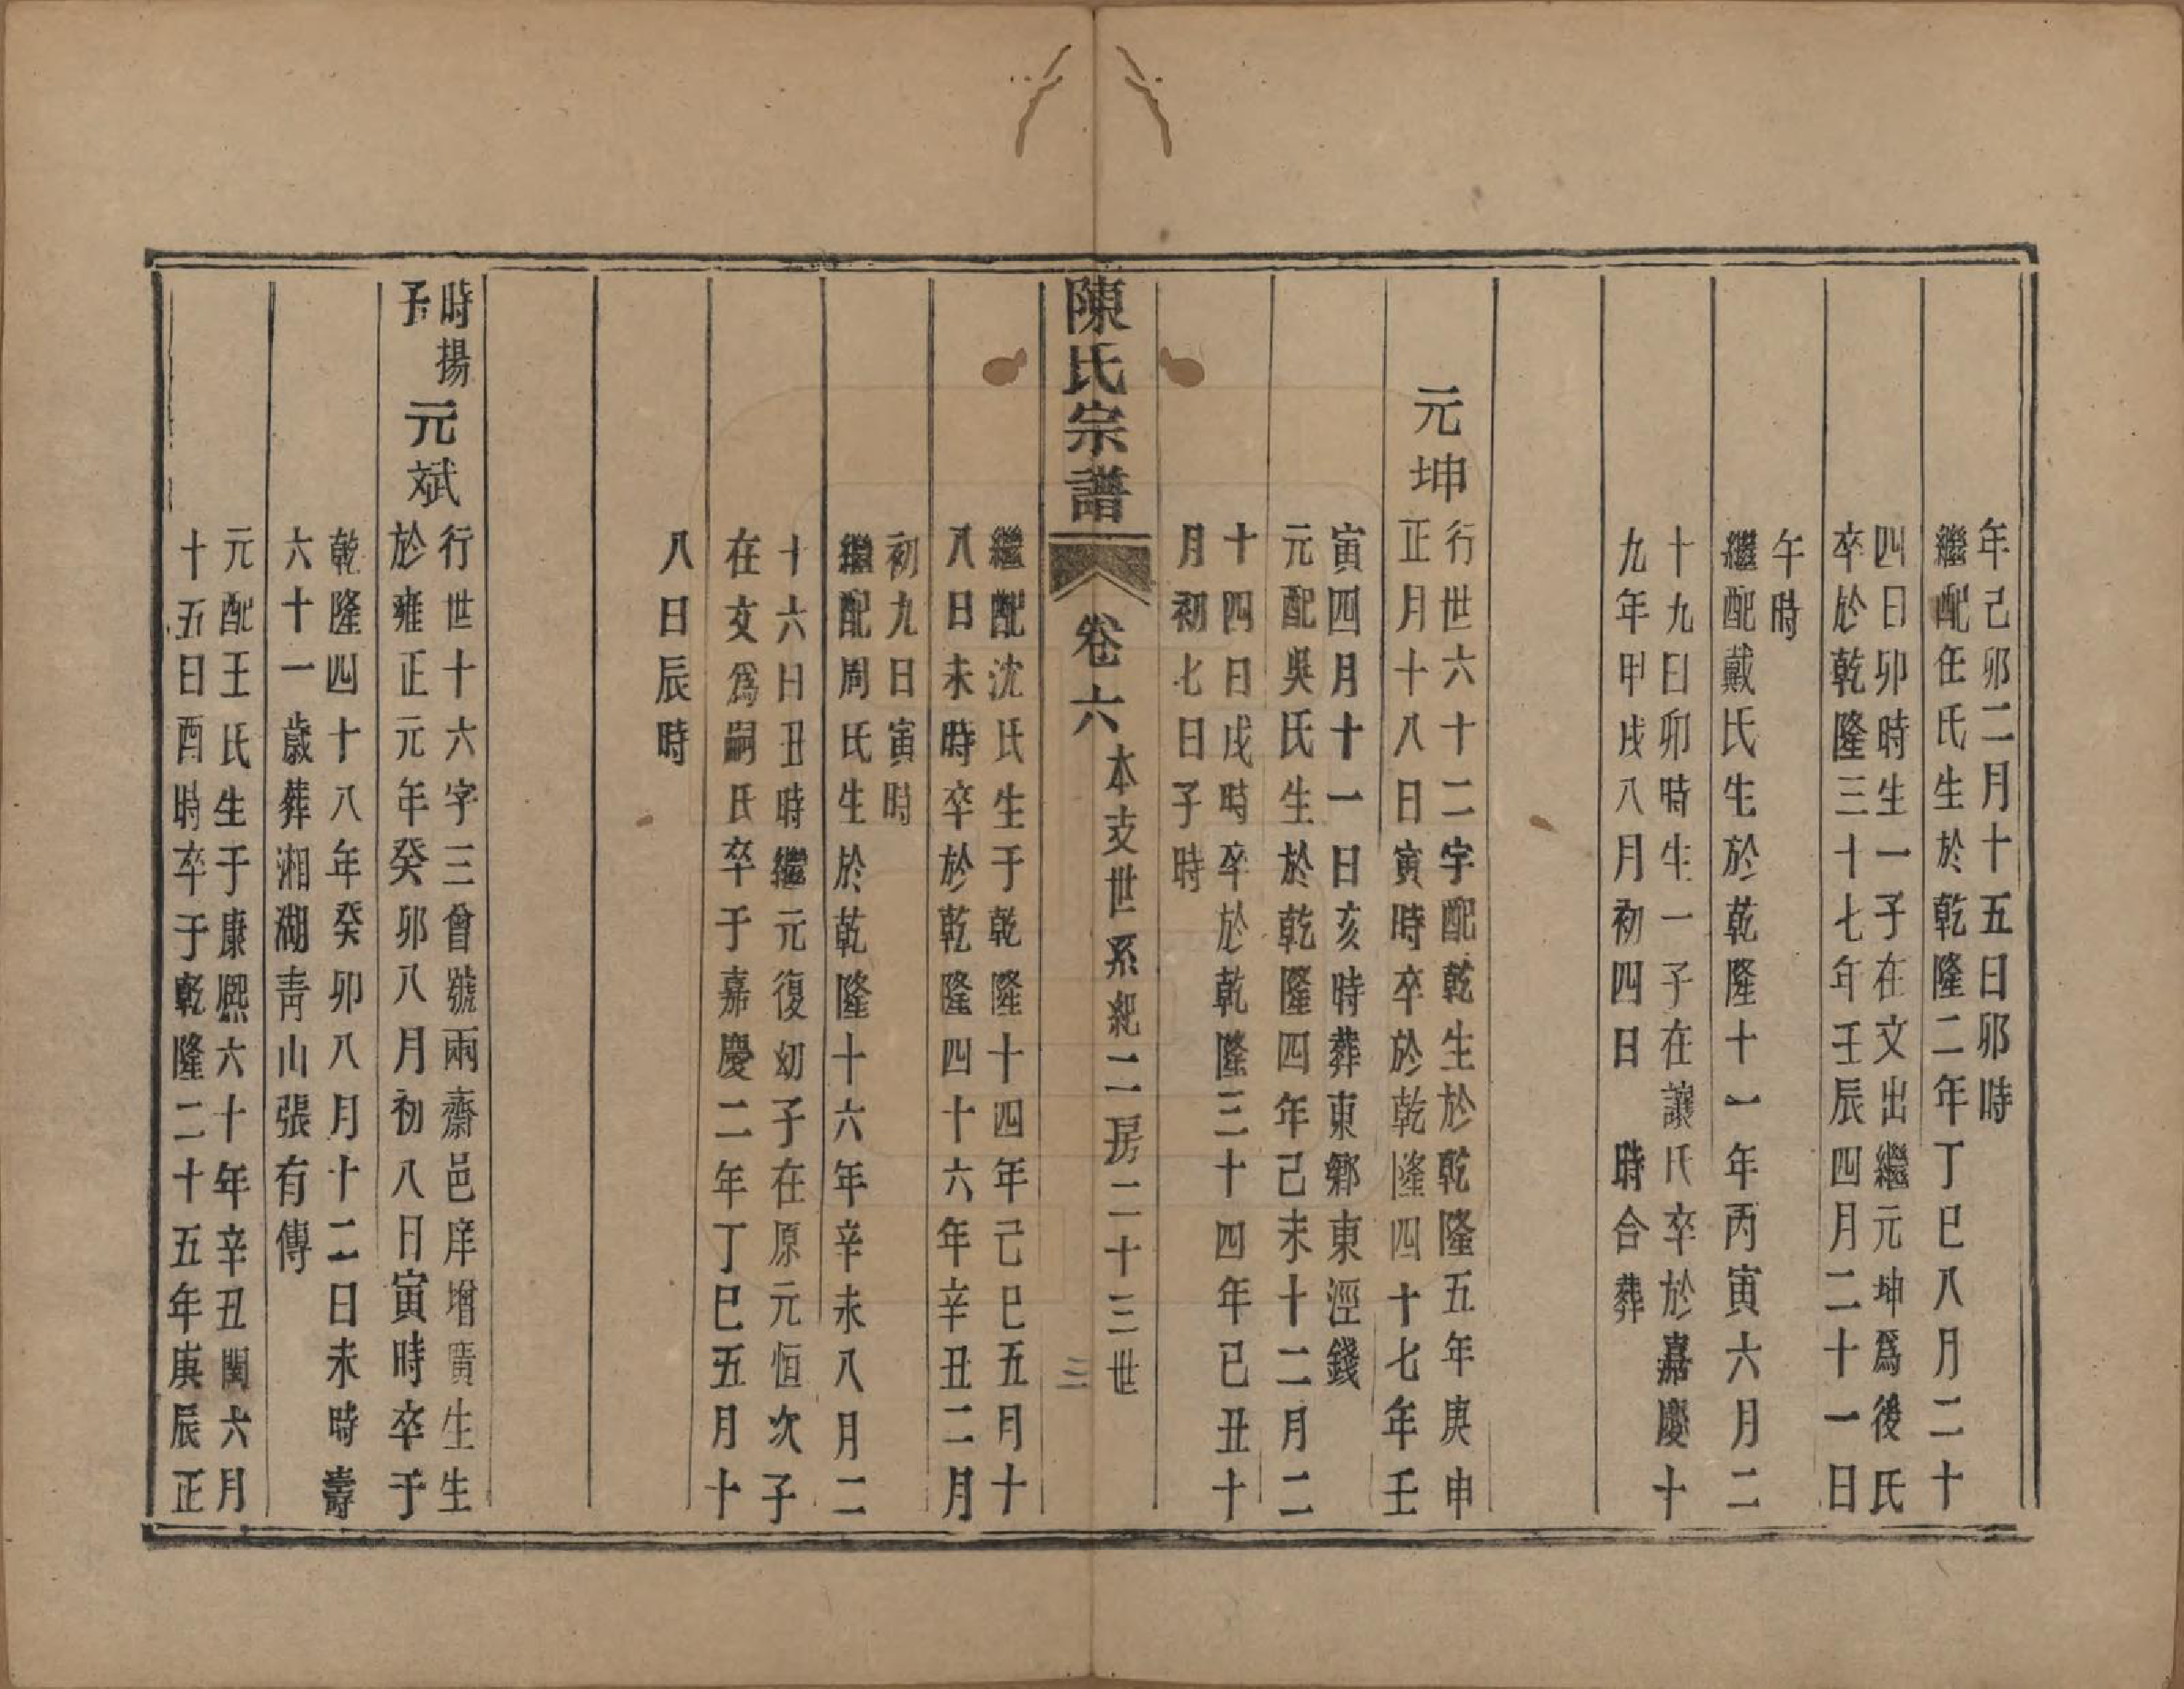 年己卯二月十五日卯時
繼配任氏生於乾隆二年丁巳八月二十
四日卯時生一子在文出繼元坤爲後氏
卒於乾隆三十七年壬辰四月二十一日
午時
繼配戴氏生於乾隆十一年丙寅六月二
十九日卯時生一子在讓氏卒於嘉慶十
九年甲戌八月初四日　時合葬
元坤
行世六十二字配乾生於乾隆五年庚申
正月十八日寅時卒於乾隆四十七年壬
寅四月十一日亥時葬東鄉東涇錢
元配吳氏生於乾隆四年己未十二月二
十四日戌時卒於乾隆三十四年己丑十
月初七日子時
陳氏宗譜
卷六
本支世系紀二房二十三世
三
繼配沈氏生于乾隆十四年己巳五月十
八日未時卒於乾隆四十六年辛丑二月
初九日寅時
繼配周氏生於乾隆十六年辛未八月二
十六日丑時繼元復幼子在原元恒次子
在文爲嗣氏卒于嘉慶二年丁巳五月十
八日辰時
時揚
子
元斌
行世十六字三曾號兩齋邑庠增廣生生
於雍正元年癸卯八月初八日寅時卒于
乾隆四十八年癸卯八月十二日未時壽
六十一歲葬湘湖青山張有傳
元配王氏生于康熙六十年辛丑閏六月
十五日酉時卒于乾隆二十五年庚辰正